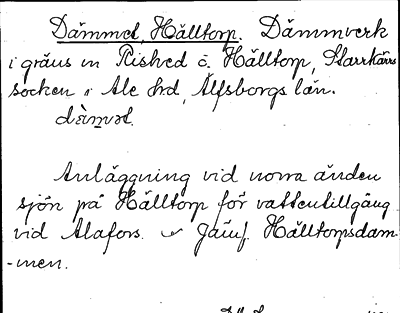 Dämmet, Hälltorp. Dämmverk
i gräns m Rished o. Hälltorp, Starrkärrs
socken i Ale hd, Älfsborgs län.
dämət.
Anläggning vid norra änden
sjön på Hälltorp för vattentillgång
vid Alafors. Jämf. Hälltorpsdam-
-men.